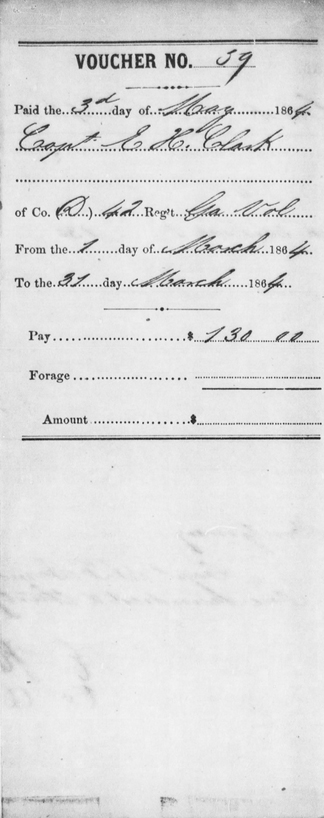 VOUCHER NO. 59
Paid the 3d day of May 1864.
Capt E. H. Clark
of Co. (D) 42 Reg't Ga Vol
From the 1 day of March 1864.
To the 31 day March 1864.
Pay $ 130 00
Forage
Amount $